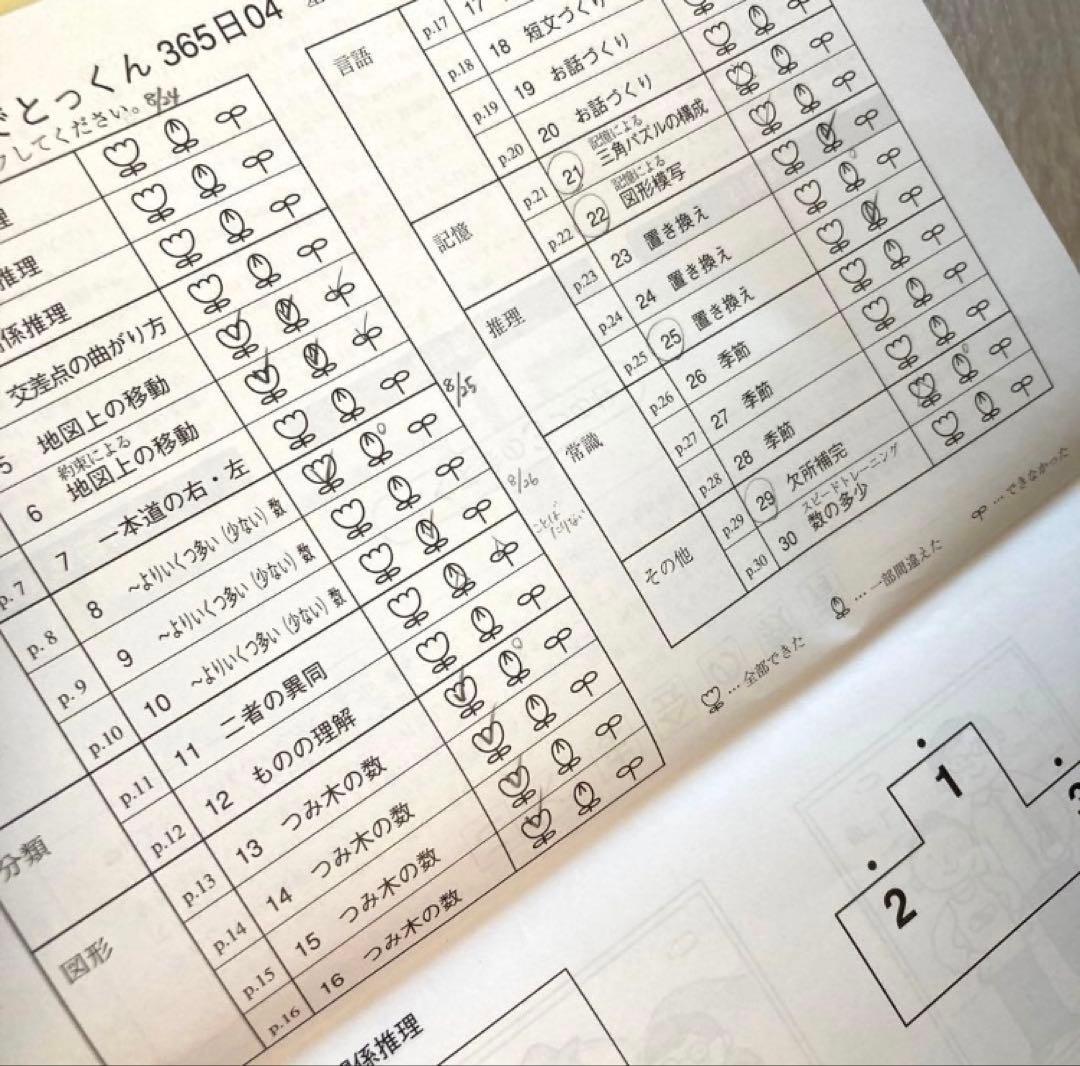 とっくん 365日04
クしてください。8/24
理
推理
係推理
交差点の曲がり方
5 地図上の移動
約束による
6 地図上の移動
p.7 7 一本道の右・左
p.8 8 ~よりいくつ多い(少ない)数
p.9 9 ~よりいくつ多い(少ない)数
p.10 10 ~よりいくつ多い(少ない)数
分類 p.11 11 二者の異同
p.12 12 ものの理解
図形 p.13 13 つみ木の数
p.14 14 つみ木の数
p.15 15 つみ木の数
p.16 16 つみ木の数
8/25
8/26
ことば
たりない
言語 p.17 17
p.18 18 短文づくり
p.19 19 お話づくり
p.20 20 お話づくり
記憶による
記憶 p.21 21 三角パズルの構成
記憶による
p.22 22 図形模写
推理 p.23 23 置き換え
p.24 24 置き換え
p.25 25 置き換え
常識 p.26 26 季節
p.27 27 季節
p.28 28 季節
p.29 29 欠所補完
スピードトレーニング
その他 p.30 30 数の多少
…全部できた
…一部間違えた
…できなかった
係推理
1
2